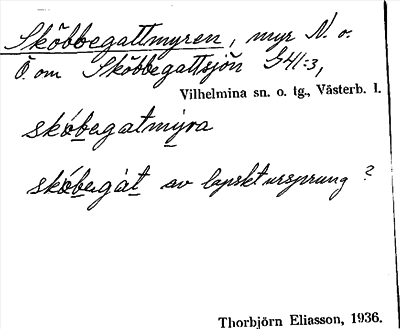 Sköbbegattmyren, myr N. o.
Ö. om Sköbbegattsjön G41:3,
Vilhelmina sn. o. tg., Västerb. l.
skóbegatmýra
skóbegát av lapskt ursprung ?
Thorbjörn Eliasson, 1936.